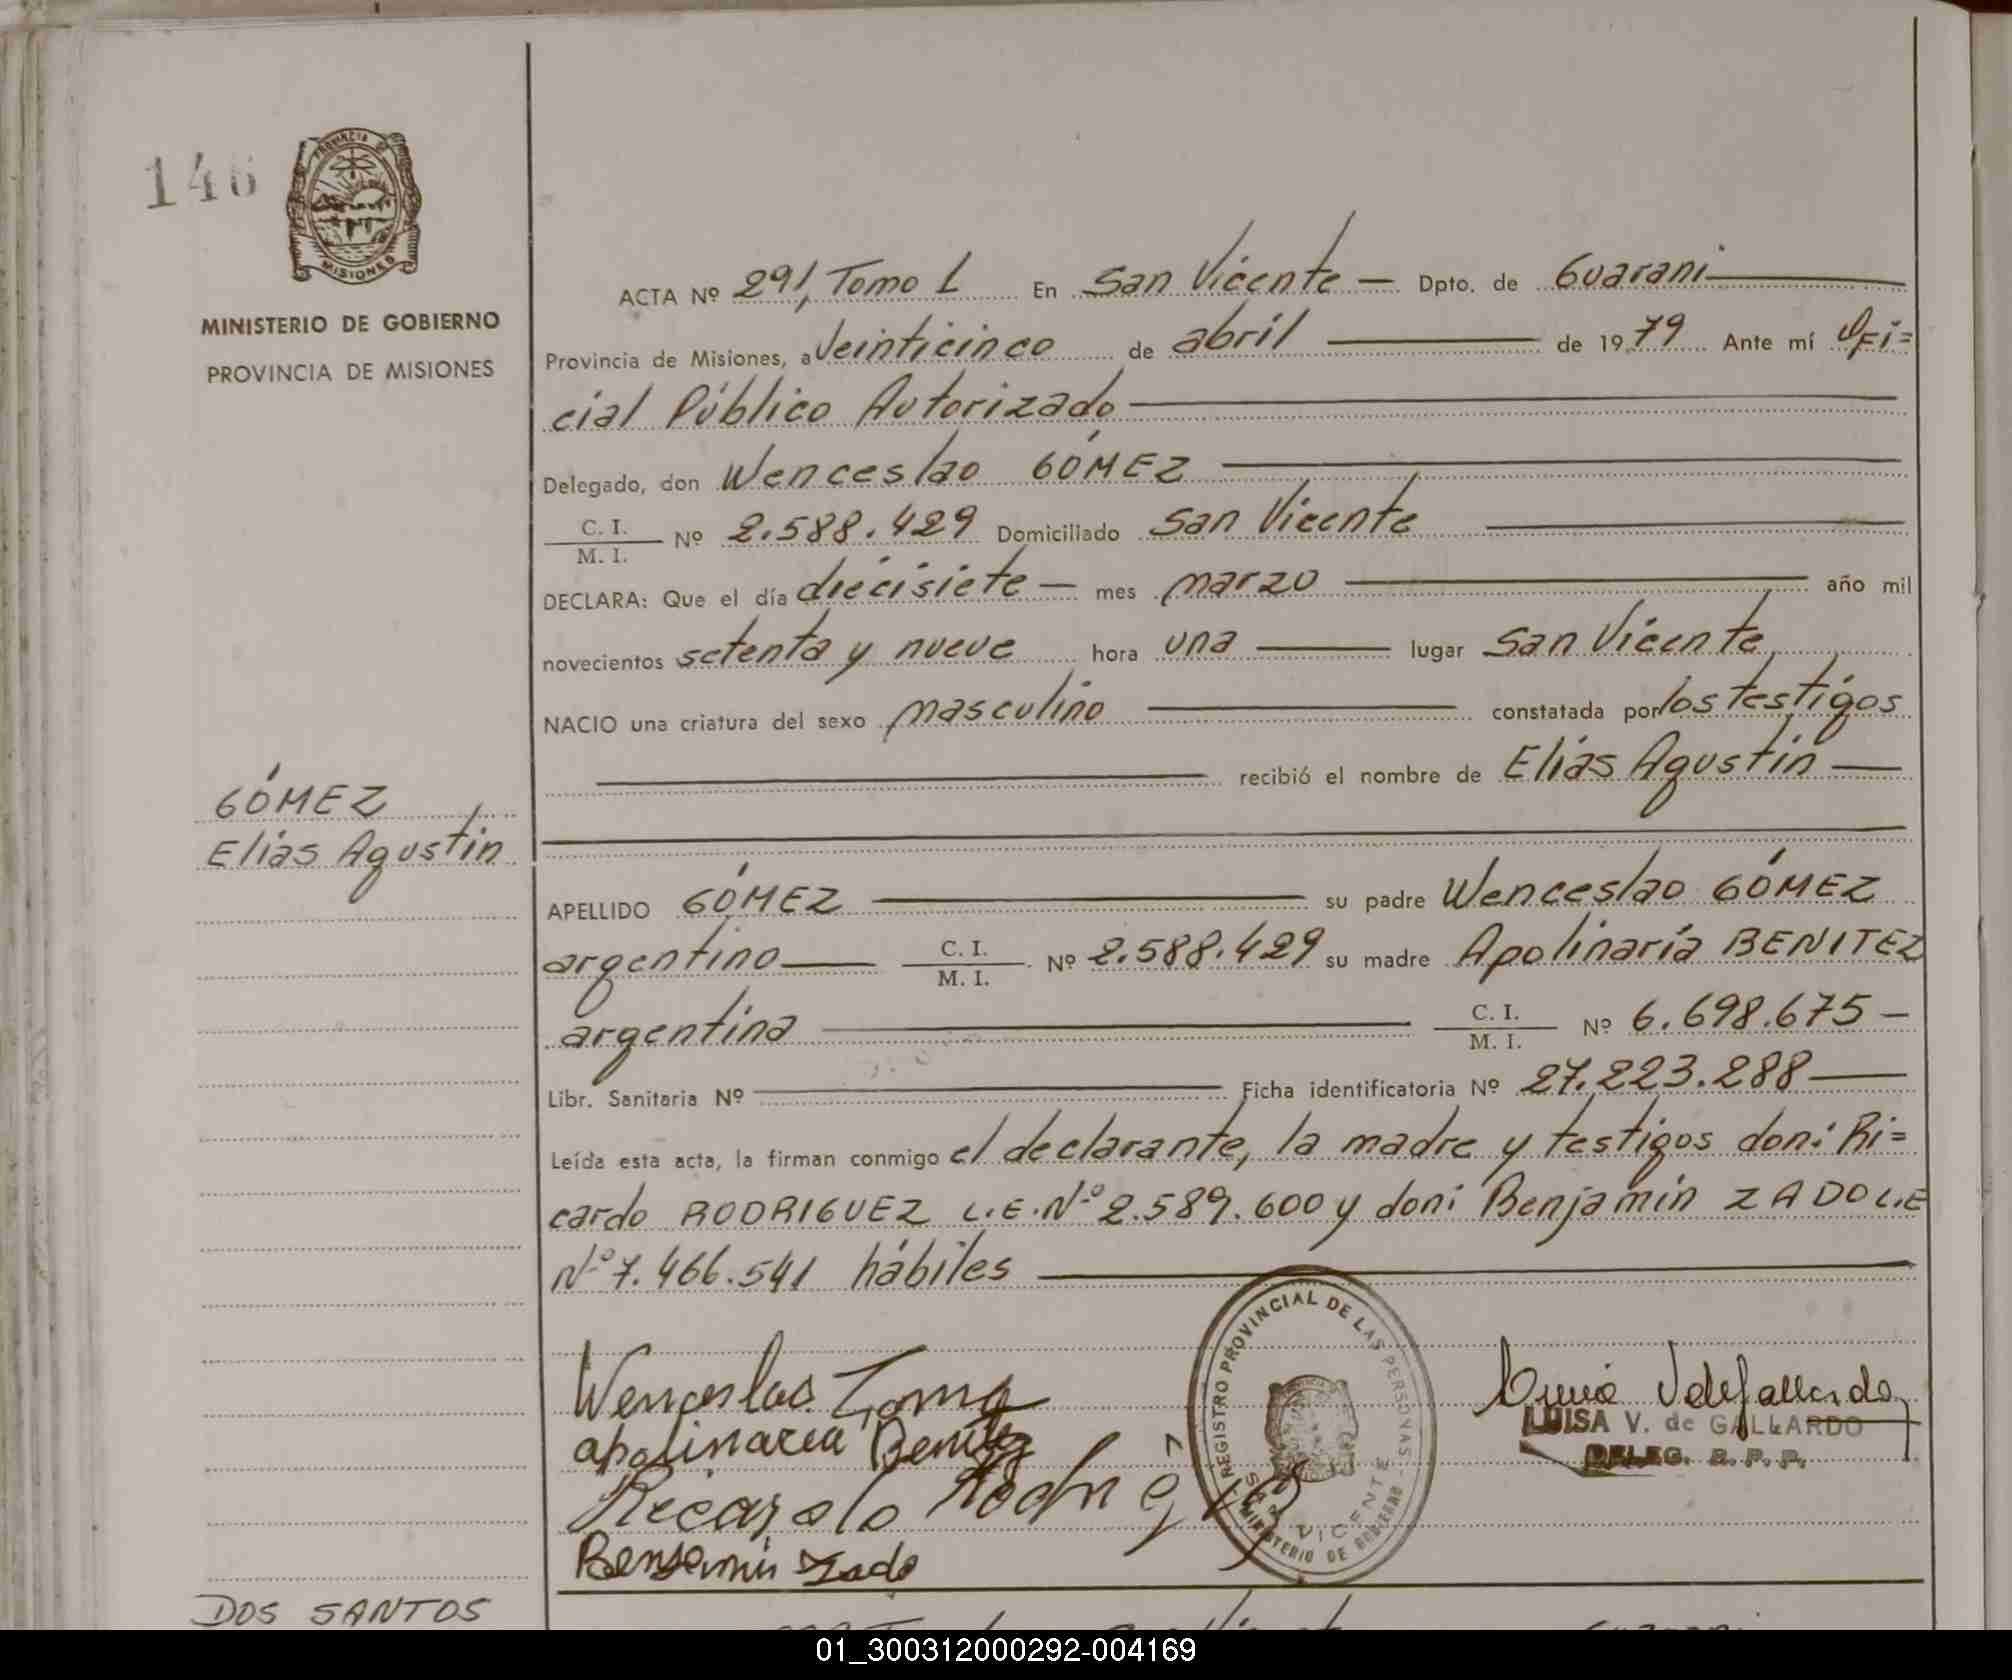 146
PROVINCIA DE
MISIONES
MINISTERIO DE GOBIERNO
PROVINCIA DE MISIONES
GÓMEZ
Elías Agustín
ACTA Nº 291, Tomo I En San Vicente — Dpto. de Guaraní
Provincia de Misiones, a veinticinco de abril de 1979 Ante mí Ofi=
cial Público Autorizado
Delegado, don Wenceslao GÓMEZ
C. I. / M. I. Nº 2.588.429 Domiciliado San Vicente
DECLARA: Que el día diecisiete — mes marzo año mil
novecientos setenta y nueve hora una lugar San Vicente
NACIO una criatura del sexo masculino constatada por los testigos
recibió el nombre de Elías Agustín —
APELLIDO GÓMEZ su padre Wenceslao GÓMEZ
argentino C. I. / M. I. Nº 2.588.429 su madre Apolinaria BENITEZ
argentina C. I. / M. I. Nº 6.698.675 —
Libr. Sanitaria Nº Ficha identificatoria Nº 27.223.288
Leída esta acta, la firman conmigo el declarante, la madre y testigos don: Ri=
cardo RODRIGUEZ L.E. Nº 2.589.600 y don: Benjamín ZADO L.E
Nº 7.466.541 hábiles
Wenceslao
apolinarea Benitez
Recardo Rodrigez
Benjamin Zado
REGISTRO PROVINCIAL DE LAS PERSONAS
SAN VICENTE
MINISTERIO DE GOBIERNO
Luisa V de Gallardo
LUISA V. de GALLARDO
DELEG. R. P. P.
DOS SANTOS
01_300312000292-004169